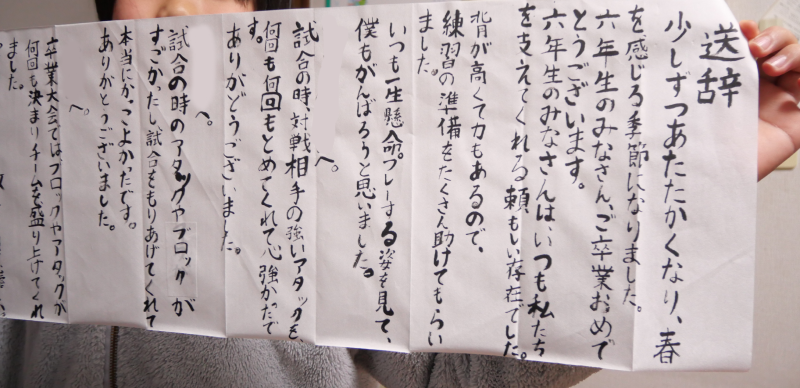 送辞
少しずつあたたかくなり、春
を感じる季節になりました。
六年生のみなさん、ご卒業おめで
とうございます。
六年生のみなさんは、いつも私たち
を支えてくれる頼もしい存在でした。
背が高くて力もあるので、
練習の準備をたくさん助けてもらい
ました。
いつも一生懸命プレーする姿を見て、
僕もがんばろうと思いました。
へ。
試合の時、対戦相手の強いアタックを、
何回も何回もとめてくれて心強かったで
す。
ありがとうございました。
へ。
試合の時のアタックやブロックが
すごかったし試合をもりあげてくれて
本当にかっこよかったです。
ありがとうございました。
へ。
卒業大会ではブロックやアタックが
何回も決まりチームを盛り上げてくれ
ました。